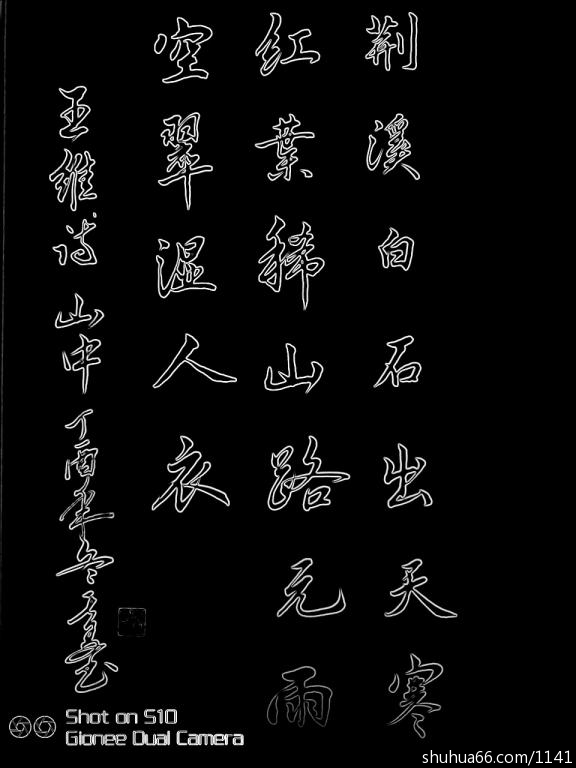 荆溪白石出天寒
红葉稀山路元雨
空翠湿人衣
王维诗山中丁酉年冬
Shot on S10
Gionee Dual Camera
shuhua66.com/1141